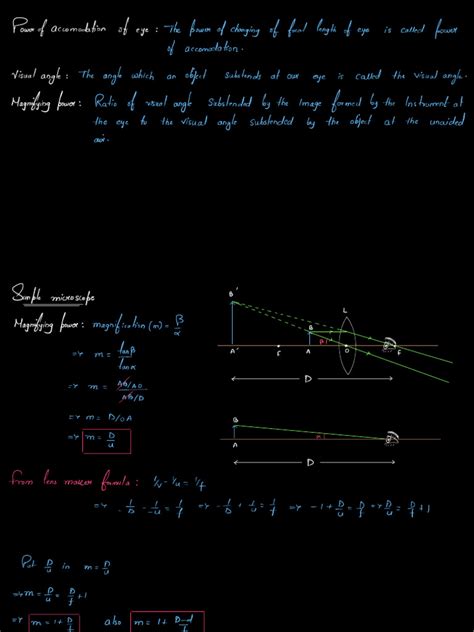 Power of accomodation of eye : The power of changing of focal length of eye is called power
of accomodation.
Visual angle : The angle which an object subtends at our eye is called the visual angle.
Magnifying power : Ratio of visual angle Subtended by the Image formed by the Instrument at
the eye to the visual angle subtended by the object at the unaided
Simple microscope
Magnifying power : magnification (m) = β/α
⇒ m = tanβ/tanα
⇒ m = AB/AO / AB/D
⇒ m = D/OA
⇒ m = D/u
B' L
B
A' F A O F
D
B
A
D
From lens maker formula : 1/v - 1/u = 1/f
⇒ -1/D - 1/-u = 1/f ⇒ -1/D + 1/u = 1/f ⇒ -1 + D/u = D/f ⇒ D/u = D/f + 1
Put D/u in m = D/u
⇒ m = D/u = D/f + 1
⇒ m = 1 + D/f also m = 1 + D-d/f